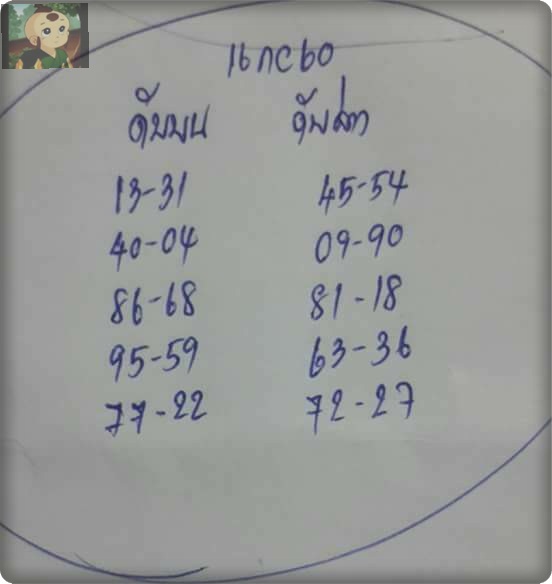 16กC60
ดับบน ดับล่าง
13-31 45-54
40-04 09-90
86-68 81-18
95-59 63-36
77-22 72-27